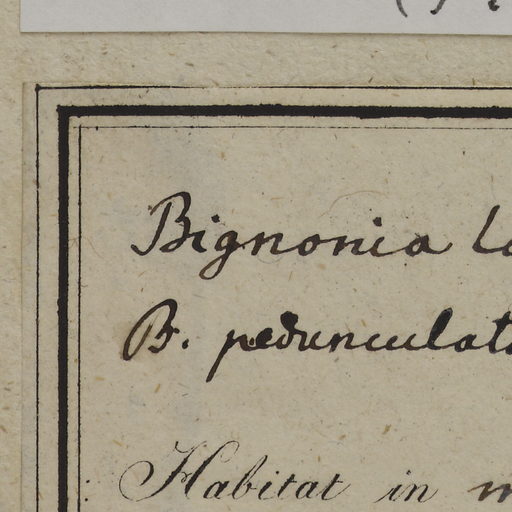 Bignonia
B. pedunculat
Habitat in